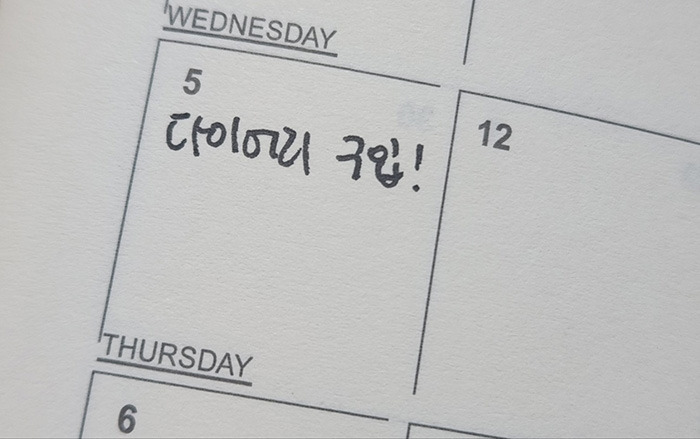 WEDNESDAY
5
다이어리 구입!
12
THURSDAY
6